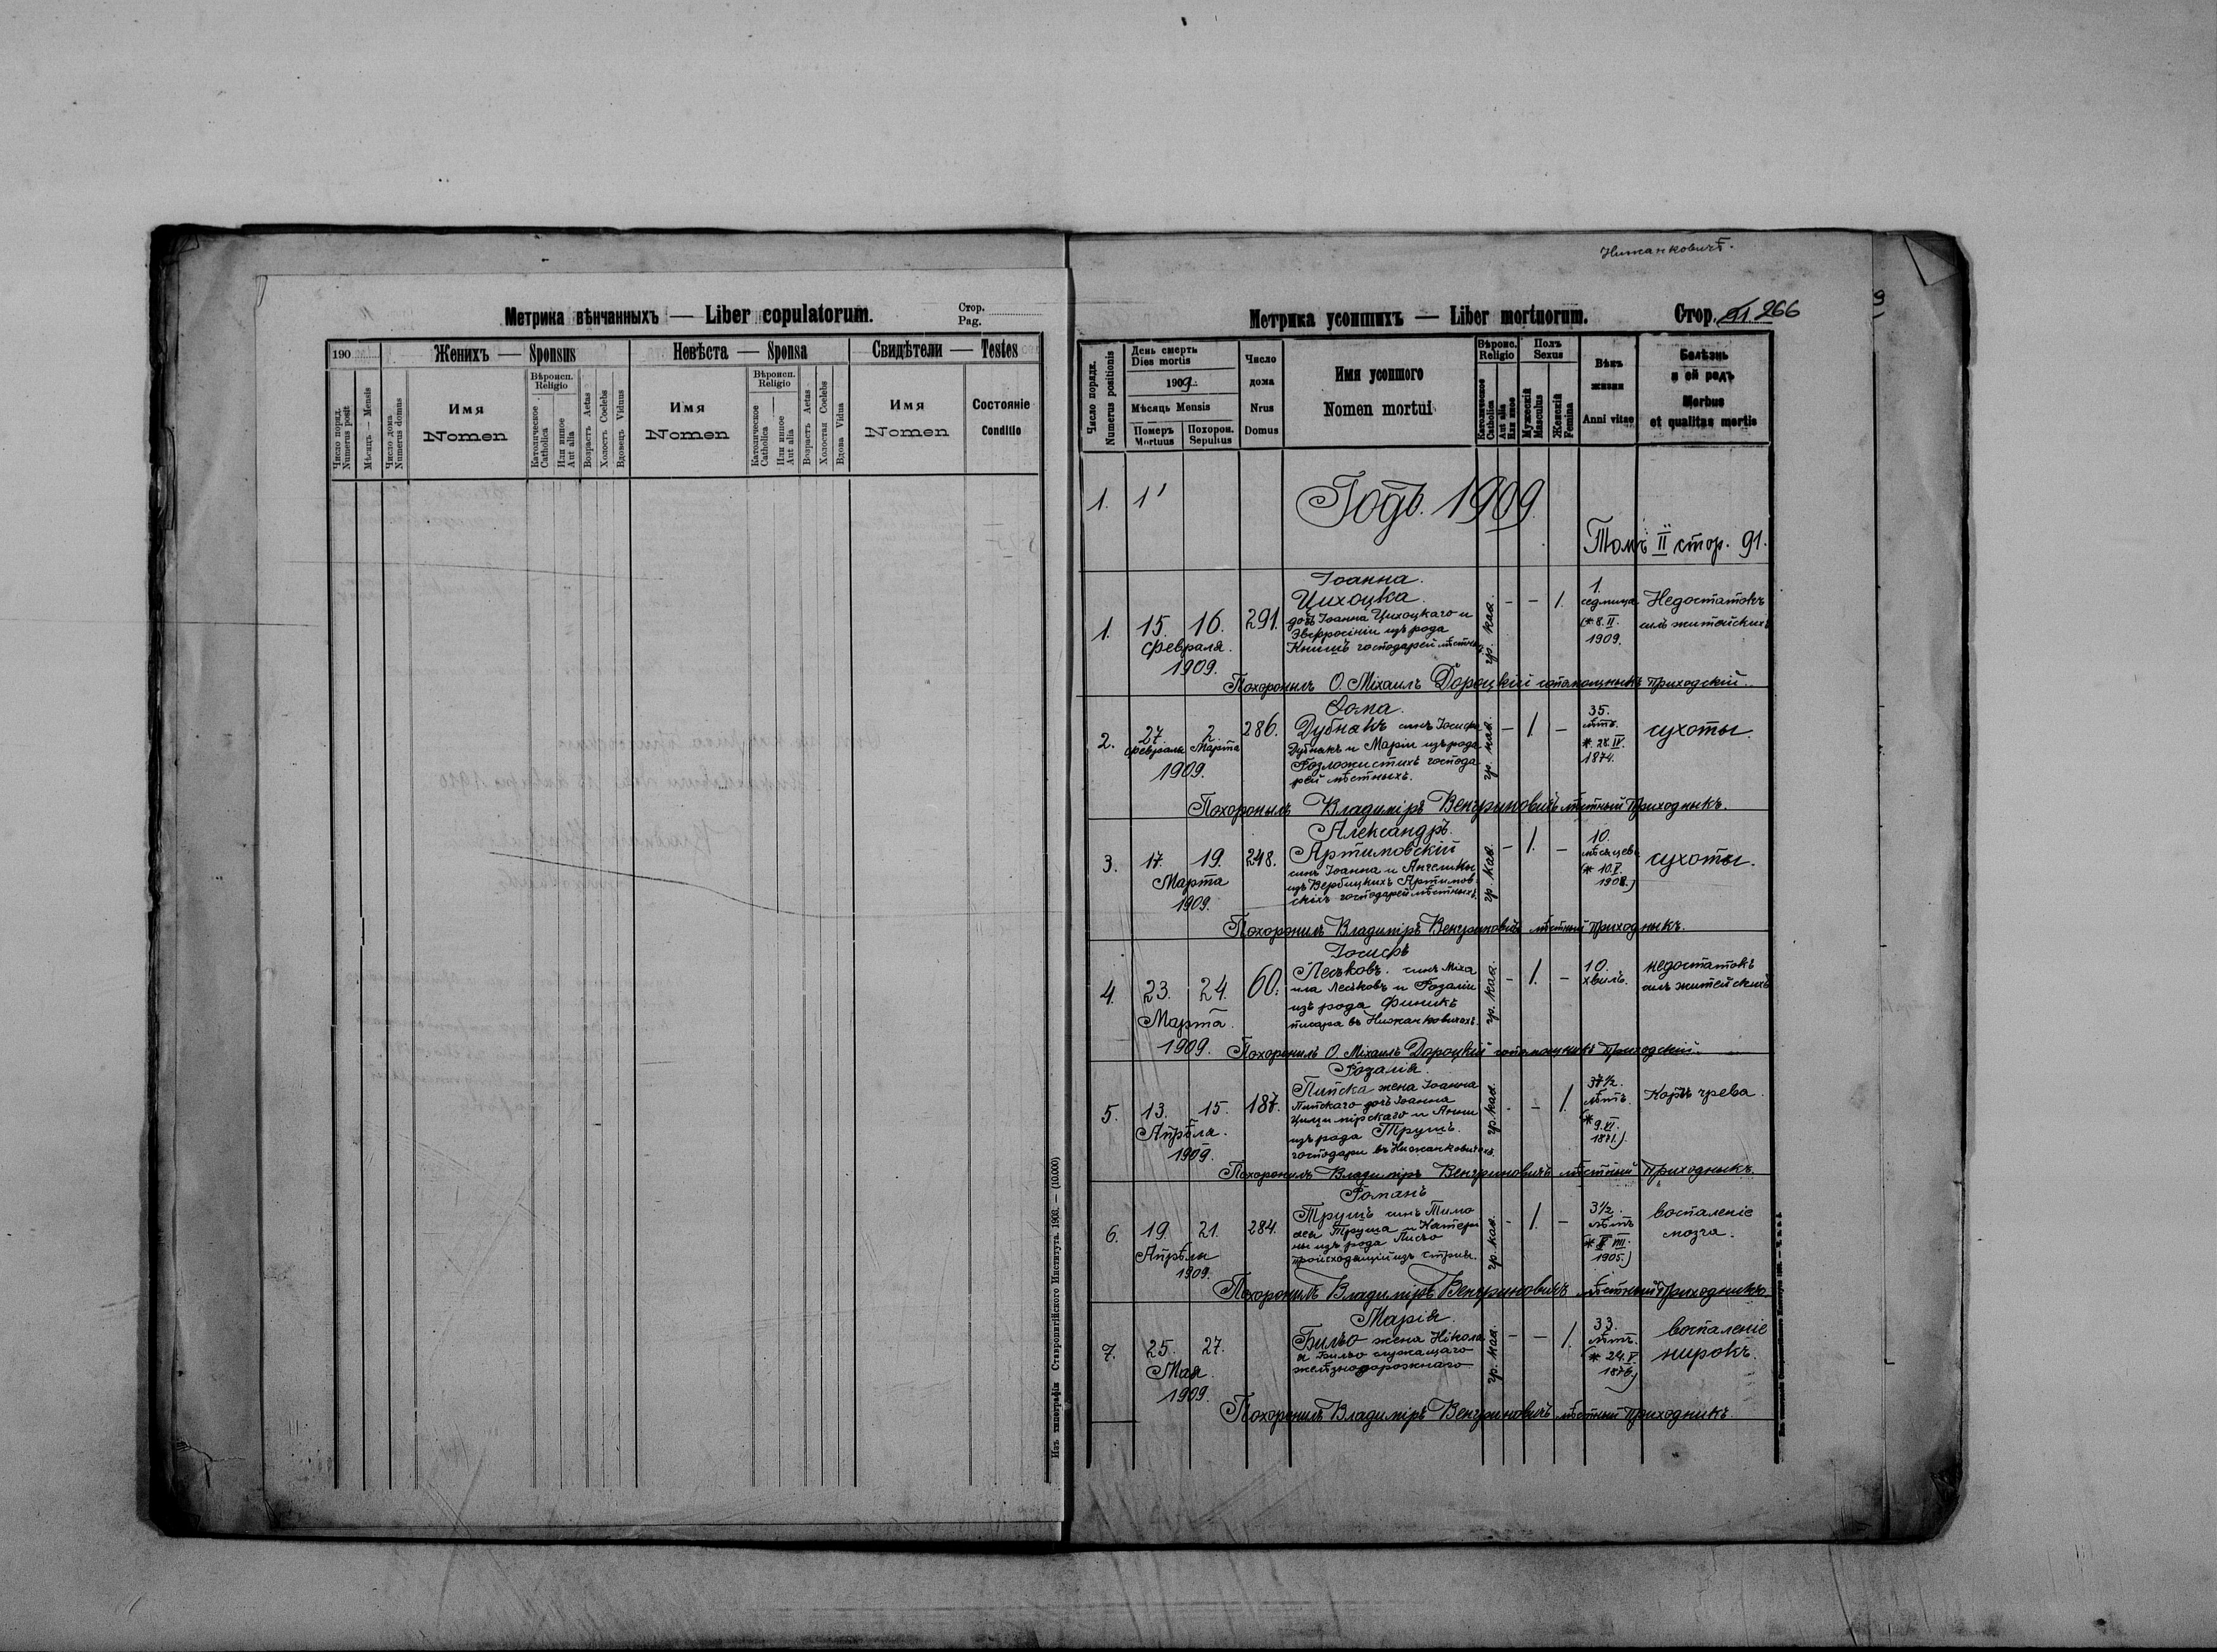 Метрика вѣнчанныхъ — Liber copulatorum.
Стор.
Pag.
190
Женихъ — Sponsus
Невѣста — Sponsa
Свидѣтели — Testes
Число поряд.
Numerus posit
Мѣсяцъ — Mensis
Число дома
Numerus domus
Имя
Nomen
Вѣроисп.
Religio
Католическое
Catholica
Или инное
Aut alia
Возрастъ Aetas
Холостъ Coelebs
Вдовецъ Viduus
Имя
Nomen
Вѣроисп.
Religio
Католическое
Catholica
Или инное
Aut alia
Возрастъ Aetas
Холостая Coelebs
Вдова Vidua
Имя
Nomen
Состояніе
Conditio
Изъ типографіи Ставропигійского Института. 1908. — (10.000)
Нижанковичѣ.
Метрика усопшихъ — Liber mortuorum.
Стор. 91 266
Число порядк.
Numerus positionis
День смерть
Dies mortis
1909
Мѣсяцъ Mensis
Померъ
Mortuus
Похорон.
Sepultus
Число
дома
Nrus
Domus
Имя усопшого
Nomen mortui
Вѣроис.
Religio
Католическое
Catholica
Aut alia
Или иное
Полъ
Sexus
Мужескій
Masculus
Женскій
Femina
Вѣкъ
жизни
Anni vitae
Болѣзнь
и ей родъ
Morbus
et qualitas mortis
1. 1'
Годъ. 1909
Томъ II стор. 91.
1. 15. 16. 291.
Февраля.
1909.
Іоанна.
Цихоцка.
дочь Іоанна Цихоцкаго и
Эвфросініи изъ рода
Книшъ господарей мѣстн.
гр. каѳ. - - 1.
1.
седмица
(* 8. II.
1909.
Недостатокъ
силъ житейскихъ
Похоронилъ О. Міхаилъ Дороцкій сотрудникъ приходскій.
2. 27. 2. 286.
Февраля Марта
1909.
Ѳома.
Дубнакъ синъ Іосифа
Дубнакъ и Маріи изъ рода
Розложистихъ господа
рей мѣстныхъ.
гр. каѳ. - 1. -
35.
лѣтъ.
* 28. IV.
1874.
сухоты.
Похоронылъ Владиміръ Венгриновичъ мѣстный Приходныкъ.
3. 17 19. 248.
Марта
1909.
Александръ.
Артимовскій
синъ Іоанна и Ангелины
изъ Вербицкихъ Артимов
скихъ господарей мѣстныхъ.
гр. каѳ. - 1. -
10.
мѣсяцевъ
(* 10. V.
1908.)
сухоты.
Похоронилъ Владиміръ Венгриновичъ мѣстный Приходныкъ.
4. 23. 24. 60.
Марта.
1909.
Іосифъ
Леськовъ. синъ Міха
ила Леськовъ и Розаліи
изъ рода Финикъ
писара въ Нижанковичахъ.
гр. каѳ. - 1. -
10.
хвиль.
недостатокъ
силъ житейскихъ
Похоронилъ О. Міхаилъ Дороцкій сотрудникъ приходскій.
5. 13. 15. 187.
Апрѣля.
1909.
Розалія.
Пийска жена Іоанна
Пийскаго дочь Іоанна
Цицимірскаго и Анны
изъ рода Трушъ.
господари въ Нижанковичахъ.
гр. каѳ. - - 1.
37½.
лѣтъ.
(*
9. VI.
1871.).
Коръ чрева.
Похоронилъ Владиміръ Венгриновичъ мѣстный Приходныкъ
6. 19. 21. 284.
Апрѣля
1909.
Романъ
Трушъ синъ Тимо
ѳея Труша и Катери
ны изъ рода Писъо
происходящій изъ Стрыя.
гр. каѳ. - 1. -
3½.
лѣтъ
1905.)
воспаленіе
мозга.
Похоронилъ Владиміръ Венгриновичъ мѣстный Приходныкъ.
7. 25. 27.
Мая.
1909.
Марія.
Било жена Нікола
я Било служащаго
желѣзнодорожнаго
гр. каѳ. - - 1.
33.
лѣтъ.
(* 24. V.
1876.)
воспаленіе
нирокъ.
Похоронилъ Владиміръ Венгриновичъ мѣстный Приходникъ.